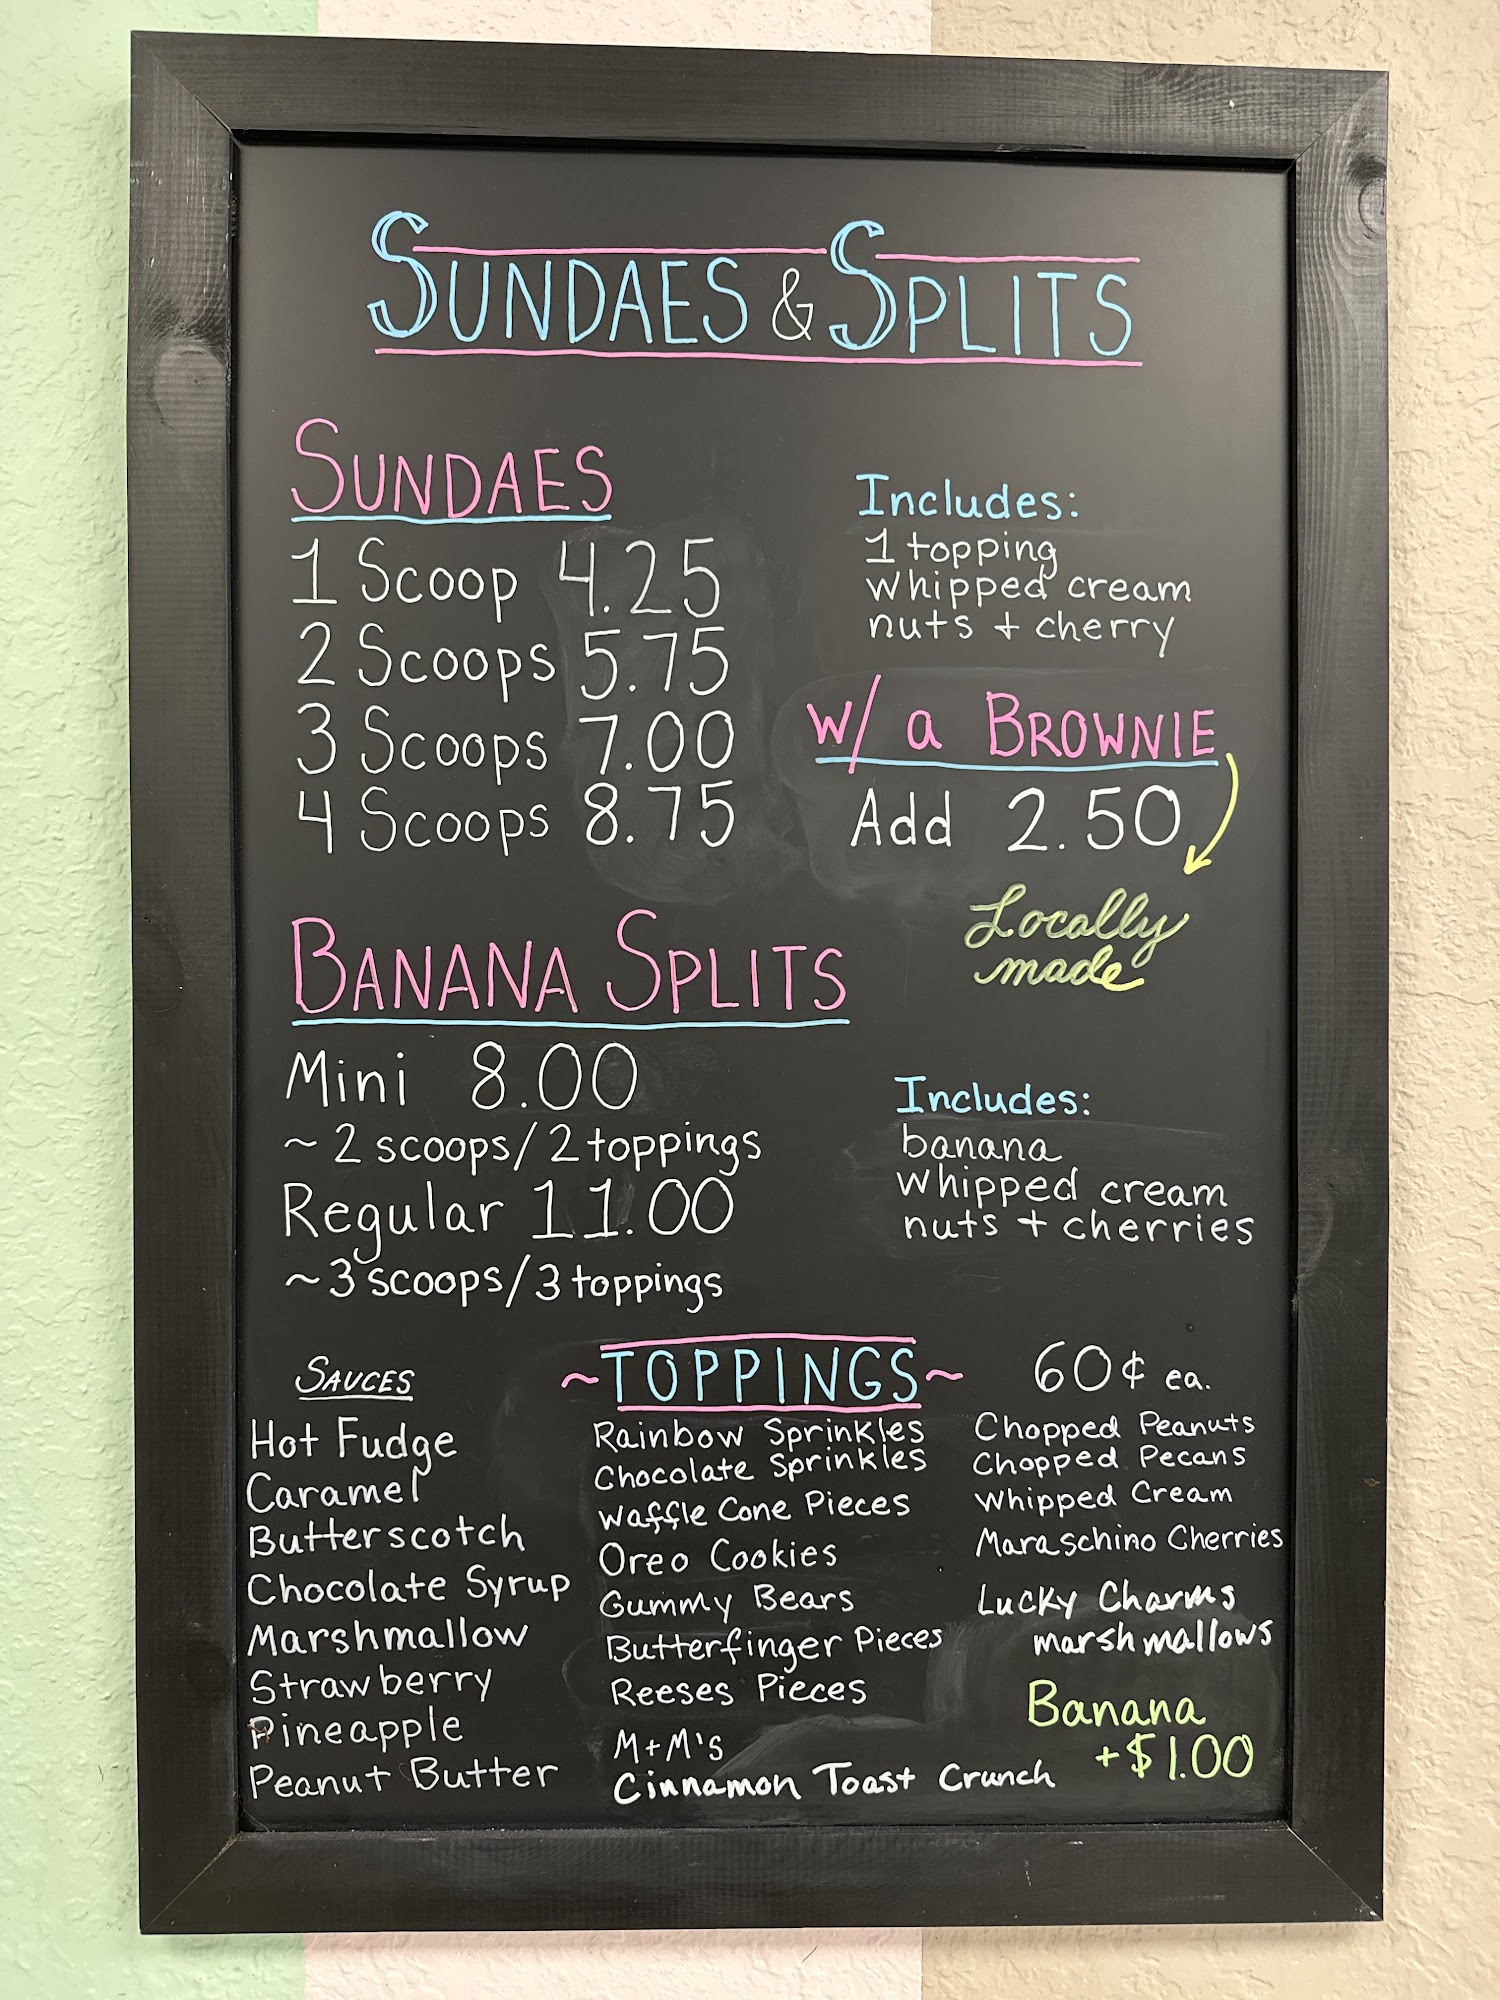 SUNDAES & SPLITS
SUNDAES
1 Scoop 4.25
2 Scoops 5.75
3 Scoops 7.00
4 Scoops 8.75
Includes:
1 topping
whipped cream
nuts + cherry
w/ a BROWNIE
Add 2.50
Locally
made
BANANA SPLITS
Mini 8.00
~ 2 scoops/2 toppings
Regular 11.00
~3 scoops/3 toppings
Includes:
banana
whipped cream
nuts + cherries
SAUCES
Hot Fudge
Caramel
Butterscotch
Chocolate Syrup
Marshmallow
Strawberry
Pineapple
Peanut Butter
~TOPPINGS~ 60¢ ea.
Rainbow Sprinkles
Chocolate Sprinkles
Waffle Cone Pieces
Oreo Cookies
Gummy Bears
Butterfinger Pieces
Reeses Pieces
M+M's
Cinnamon Toast Crunch
Chopped Peanuts
Chopped Pecans
Whipped Cream
Maraschino Cherries
Lucky Charms
marshmallows
Banana
+$1.00